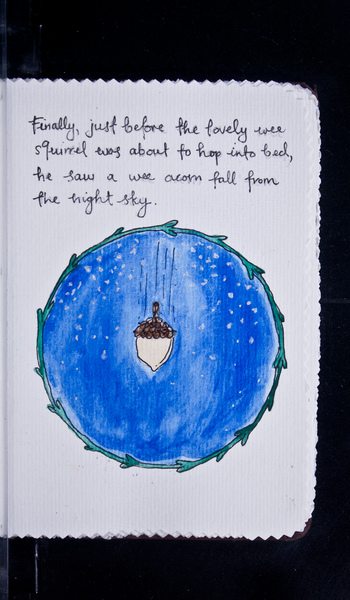 Finally, just before the lovely wee
squirrel was about to hop into bed,
he saw a wee acorn fall from
the night sky.